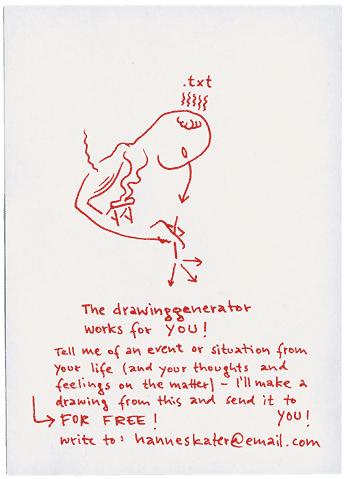 .txt
The drawinggenerator
works for YOU!
Tell me of an event or situation from
your life (and your thoughts and
feelings on the matter) – I'll make a
drawing from this and send it to
FOR FREE! YOU!
write to: hanneskater@email.com